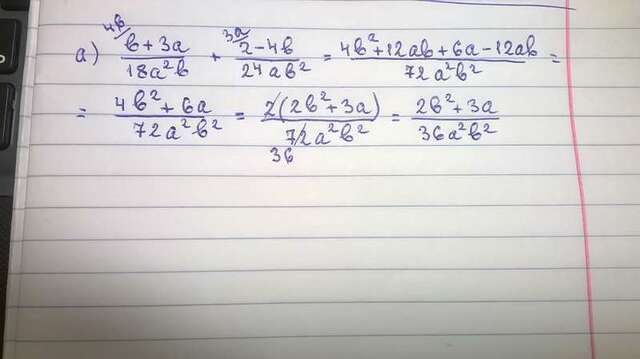 а) ⁴ᵇ/(b + 3a)/(18a²b) + ³ᵃ/(2 - 4b)/(24ab²) = (4b² + 12ab + 6a - 12ab)/(72a²b²) =
= (4b² + 6a)/(72a²b²) = (2(2b² + 3a))/(72a²b²) = (2b² + 3a)/(36a²b²)
36